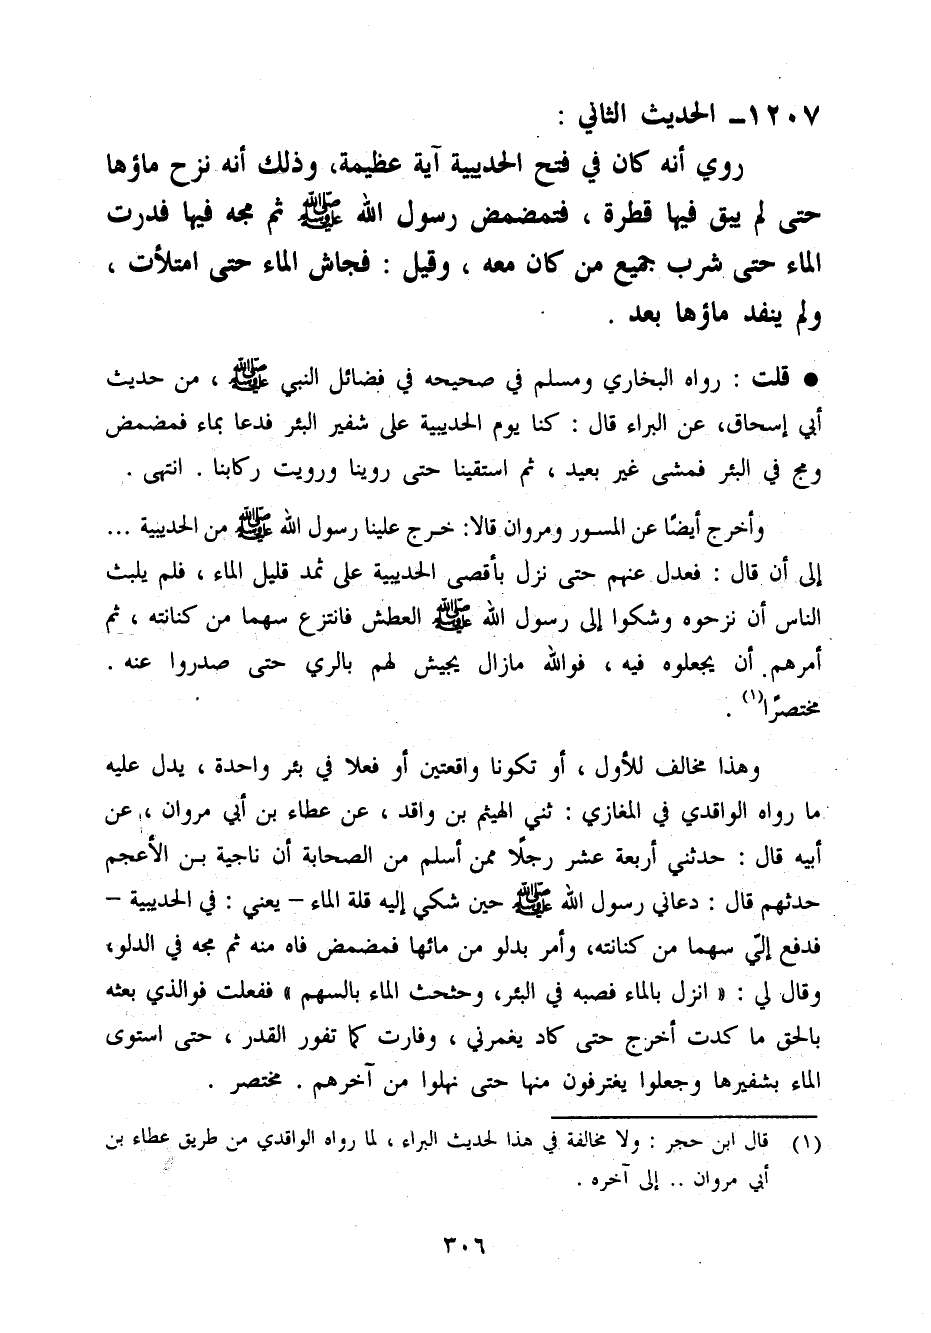 ١٢٠٧ـ الحديث الثاني :
روي أنه كان في فتح الحديبية آية عظيمة، وذلك أنه نزح ماؤها
حتى لم يبق فيها قطرة ، فتمضمض رسول الله ﷺ ثم مجه فيها فدرت
الماء حتى شرب جميع من كان معه ، وقيل : فجاش الماء حتى امتلأت ،
ولم ينفد ماؤها بعد .
● قلت : رواه البخاري ومسلم في صحيحه في فضائل النبي ﷺ ، من حديث
أبي إسحاق، عن البراء قال : كنا يوم الحديبية على شفير البئر فدعا بماء فمضمض
ومج في البئر فمشى غير بعيد ، ثم استقينا حتى روينا ورويت ركابنا . انتهى .
وأخرج أيضًا عن المسور ومروان قالا: خرج علينا رسول الله ﷺ من الحديبية ...
إلى أن قال : فعدل عنهم حتى نزل بأقصى الحديبية على ثمد قليل الماء ، فلم يلبث
الناس أن نزحوه وشكوا إلى رسول الله ﷺ العطش فانتزع سهما من كنانته ، ثم
أمرهم أن يجعلوه فيه ، فوالله مازال يجيش لهم بالري حتى صدروا عنه .
مختصرًا(١) .
وهذا مخالف للأول ، أو تكونا واقعتين أو فعلا في بئر واحدة ، يدل عليه
ما رواه الواقدي في المغازي : ثني الهيثم بن واقد ، عن عطاء بن أبي مروان ، عن
أبيه قال : حدثني أربعة عشر رجلًا ممن أسلم من الصحابة أن ناجية بن الأعجم
حدثهم قال : دعاني رسول الله ﷺ حين شكي إليه قلة الماء – يعني : في الحديبية –
فدفع إليّ سهما من كنانته، وأمر بدلو من مائها فمضمض فاه منه ثم مجه في الدلو،
وقال لي : « انزل بالماء فصبه في البئر، وحثحث الماء بالسهم » ففعلت فوالذي بعثه
بالحق ما كدت أخرج حتى كاد يغمرني ، وفارت كما تفور القدر ، حتى استوى
الماء بشفيرها وجعلوا يغترفون منها حتى نهلوا من آخرهم . مختصر .
(١) قال ابن حجر : ولا مخالفة في هذا لحديث البراء ، لما رواه الواقدي من طريق عطاء بن
أبي مروان .. إلى آخره .
٣٠٦